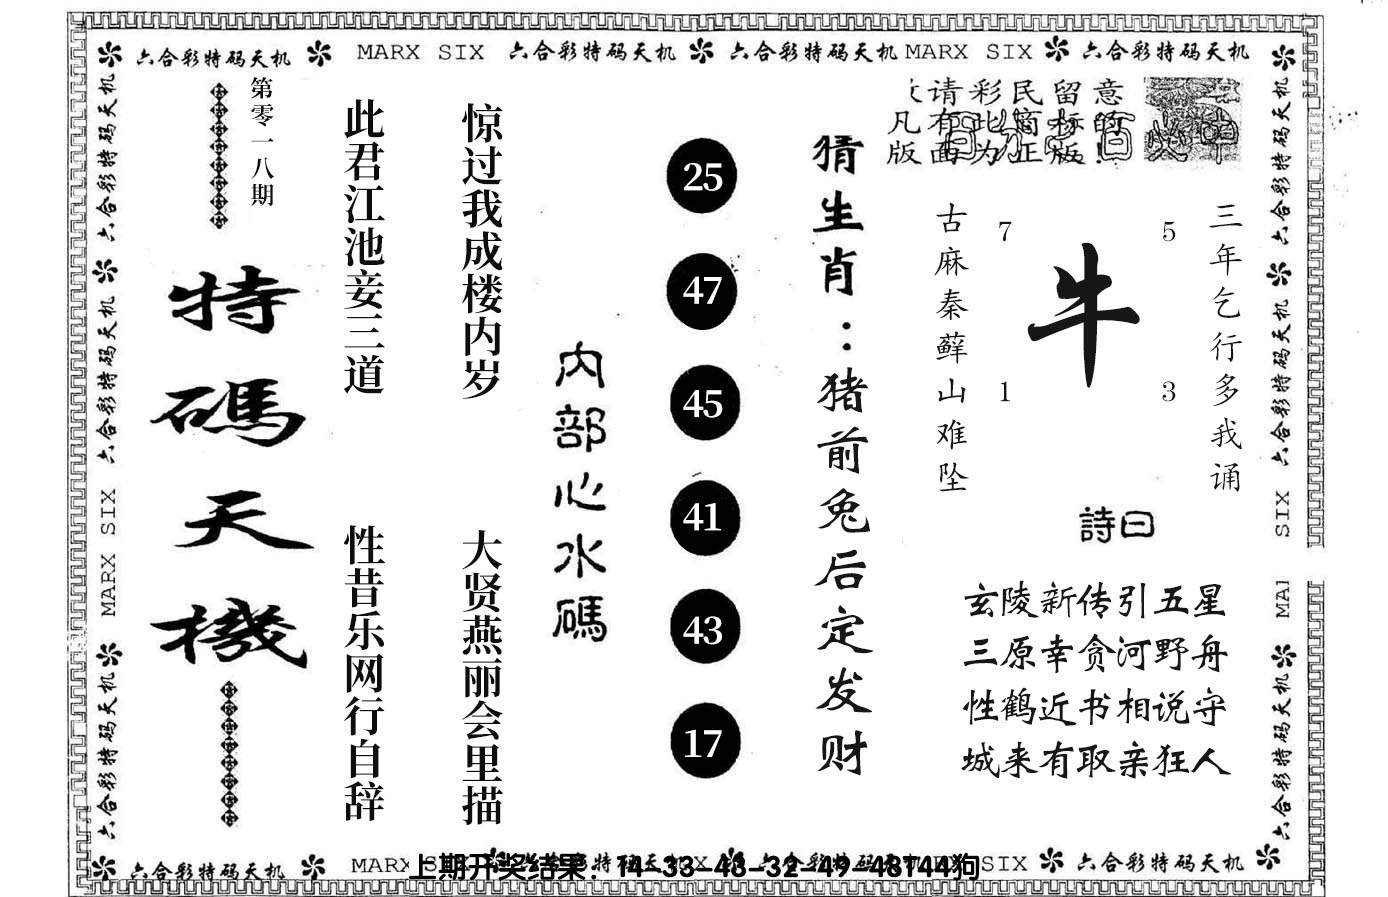 六合彩特码天机 MARX SIX 六合彩特码天机 六合彩特码天机 MARX SIX 六合彩特码天机
第零一八期
特碼天機
此君江池妾三道
性昔乐网行自辞
惊过我成楼内岁
大贤燕丽会里描
内部心水碼
25
47
45
41
43
17
猜生肖：猪前兔后定发财
请彩民留意
凡有此商标的
版面为正版!
古麻秦藓山难坠
7
5
牛
1
3
三年乞行多我诵
詩曰
玄陵新传引五星
三原幸贪河野舟
性鹤近书相说守
城来有取亲狂人
六合彩特码天机 六合彩特码天机 MARX SIX 六合彩特码天机
六合彩特码天机 六合彩特码天机 SIX 六合彩特码天机
六合彩特码天机 MARX SIX 六合彩特码天机
上期开奖结果：14-33-48-32-49-48T44狗